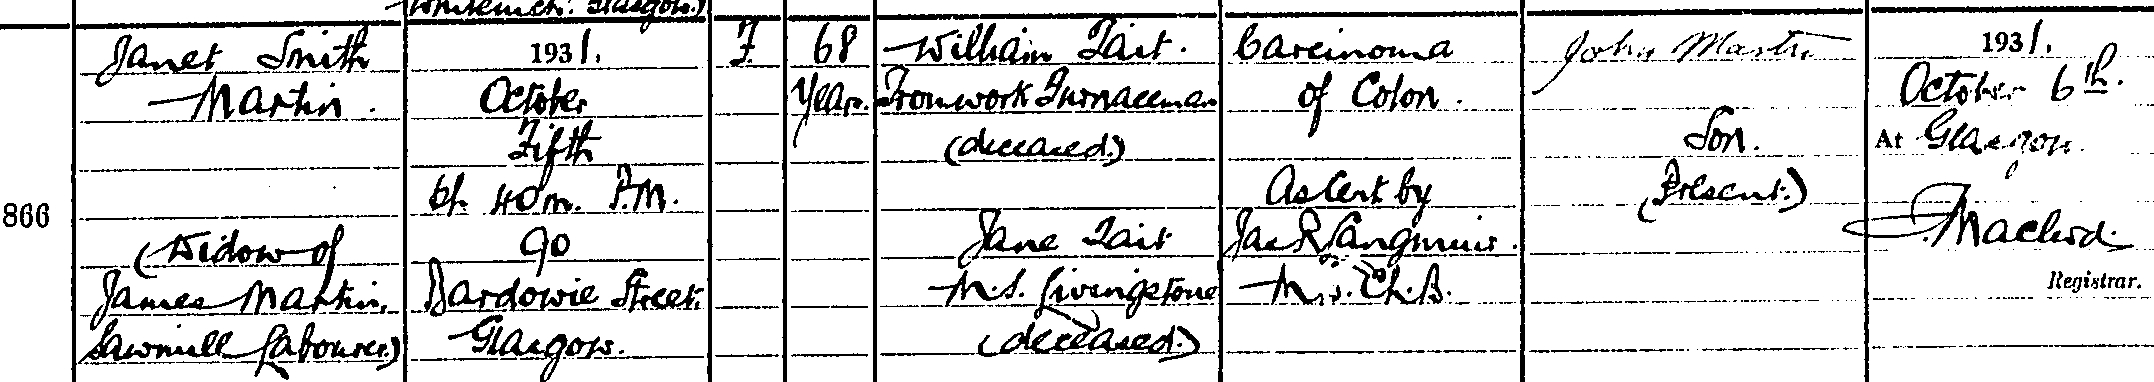 Whiteinch. Glasgow.)
866
Janet Smith
Martin.
(Widow of
James Martin,
Sawmill Labourer)
1931.
October
Fifth
6h. 40m. P.M.
90
Bardowie Street,
Glasgow.
F.
68
Years.
William Tait.
Ironwork Furnaceman
(deceased.)
Jane Tait
M.S. Livingstone
(deceased.)
Carcinoma
of Colon.
As Cert by
Jas R Langmuir.
M.B. Ch.B.
John Martin
Son.
(Present.)
1931.
October 6th.
At Glasgow.
Macleod.
Registrar.